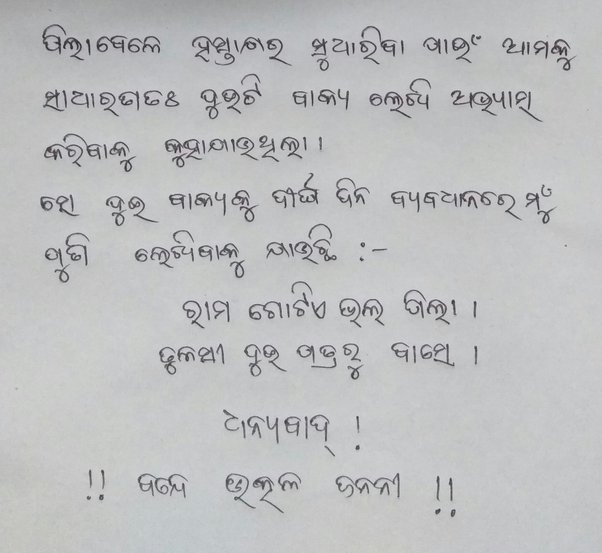 ପିଲାବେଳେ ହସ୍ତାକ୍ଷର ସୁଧାରିବା ପାଇଁ ଆମକୁ
ସାଧାରଣତଃ ଦୁଇଟି ବାକ୍ୟ ଲେଖି ଅଭ୍ୟାସ
କରିବାକୁ କୁହାଯାଉଥିଲା ।
ସେ ଦୁଇ ବାକ୍ୟକୁ ଦୀର୍ଘ ଦିନ ବ୍ୟବଧାନରେ ମୁଁ
ପୁଣି ଲେଖିବାକୁ ଯାଉଛି :-
ରାମ ଗୋଟିଏ ଭଲ ପିଲା ।
ତୁଳସୀ ଦୁଇ ପତ୍ରରୁ ବାସେ ।
ଧନ୍ୟବାଦ୍ !
!! ବନ୍ଦେ ଉତ୍କଳ ଜନନୀ !!